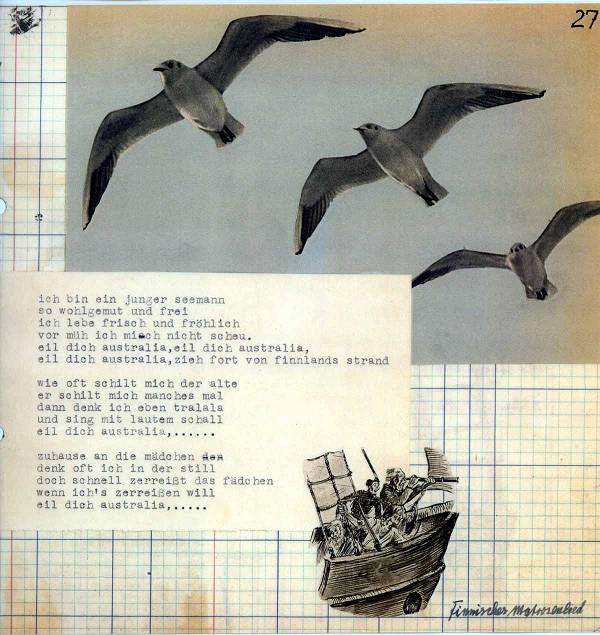 27
ich bin ein junger seemann
so wohlgemut und frei
ich lebe frisch und fröhlich
vor müh ich misch nicht scheu.
eil dich australia,eil dich australia,
eil dich australia,zieh fort von finnlands strand
wie oft schilt mich der alte
er schilt mich manches mal
dann denk ich eben tralala
und sing mit lautem schall
eil dich australia,......
zuhause an die mädchen den
denk oft ich in der still
doch schnell zerreißt das fädchen
wenn ich's zerreißen will
eil dich australia,.....
Finnisches Matrosenlied